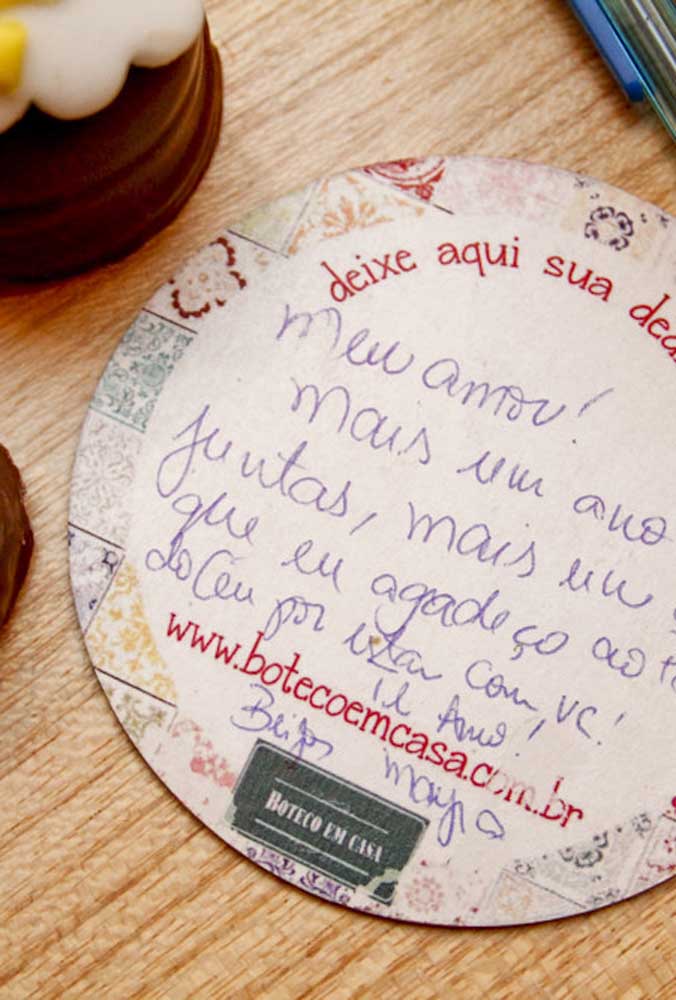 deixe aqui sua
Meu amor!
Mais um ano
juntas, mais um
que eu agadeço ao
do Céu por estar com vc!
Te Amo!
www.botecoemcasa.com.br
Beijos
Mayra
BOTECO EM CASA